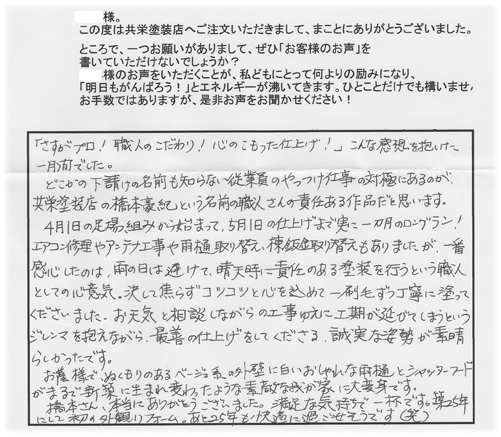 様。
この度は共栄塗装店へご注文いただきまして、まことにありがとうございました。
ところで、一つお願いがありまして、ぜひ「お客様のお声」を
書いていただけないでしょうか?
様のお声をいただくことが、私どもにとって何よりの励みになり、
「明日もがんばろう!」とエネルギーが沸いてきます。ひとことだけでも構いませ
お手数ではありますが、是非お声をお聞かせください!
「さすがプロ!職人のこだわり!心のこもった仕上げ!」こんな感想を抱いた
一月前でした。
どこかの下請けの名前も知らない従業員のやっつけ仕事の対極にあるのが、
共栄塗装店の橋本豪紀という名前の職人さんの責任ある作品だと思います。
4月1日の足場組みから始まって、5月1日の仕上げまで実に一カ月のロングラン!
エアコン修理やアンテナ工事や雨樋取り替え、棟鈑金取り替えもありましたが、一番
感心したのは、雨の日は避けて、晴天時に責任のある塗装を行うという職人
としての心意気。決して焦らずコツコツと心を込めて一刷毛ずつ丁寧に塗って
くださいました。お天気と相談しながらの工事ゆえに工期が延びてしまうという
ジレンマを抱えながら、最善の仕上げをしてくださる、誠実な姿勢が素晴
らしかったです。
お蔭様で、ぬくもりのあるベージュ系の外壁に白いおしゃれな雨樋とシャッターフード
がまるで新築に生まれ変わったような素敵な我が家に大変身です。
橋本さん、本当にありがとうございました。満足な気持ちで一杯です。築25年
にして初の外観リフォーム。あと25年も快適に過ごせそうです(笑)